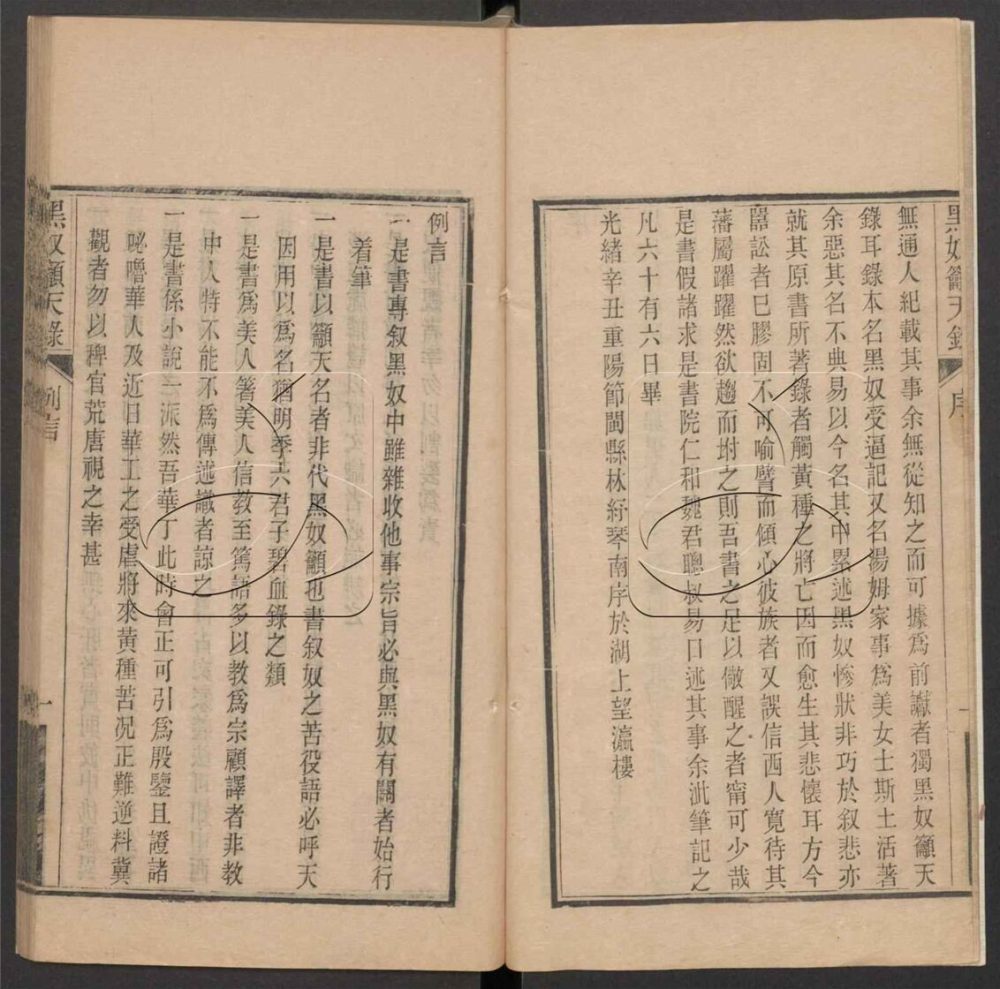 黑奴籲天錄 序
無通人紀載其事余無從知之而可據爲前讞者獨黑奴籲天
錄耳錄本名黑奴受逼記又名湯姆家事爲美女士斯土活著
余惡其名不典易以今名其中累述黑奴慘狀非巧於叙悲亦
就其原書所著錄者觸黃種之將亡因而愈生其悲懷耳方今
囂訟者已膠固不可喻譬而傾心彼族者又誤信西人寬待其
藩屬躍躍然欲趨而坿之則吾書之足以儆醒之者甯可少哉
是書假諸求是書院仁和魏君聰叔易口述其事余泚筆記之
凡六十有六日畢
光緒辛丑重陽節閩縣林紓琴南序於湖上望瀛樓
例言
一是書專叙黑奴中雖雜收他事宗旨必與黑奴有關者始行
着筆
一是書以籲天名者非代黑奴籲也書叙奴之苦役語必呼天
因用以爲名猶明季六君子碧血錄之類
一是書爲美人著美人信教至篤語多以教爲宗顧譯者非教
中人特不能不爲傳述識者諒之
一是書係小說一派然吾華丁此時會正可引爲殷鑒且證諸
嗶嚕華人及近日華工之受虐將來黃種苦况正難逆料冀
觀者勿以稗官荒唐視之幸甚
黑奴籲天錄 例言 一